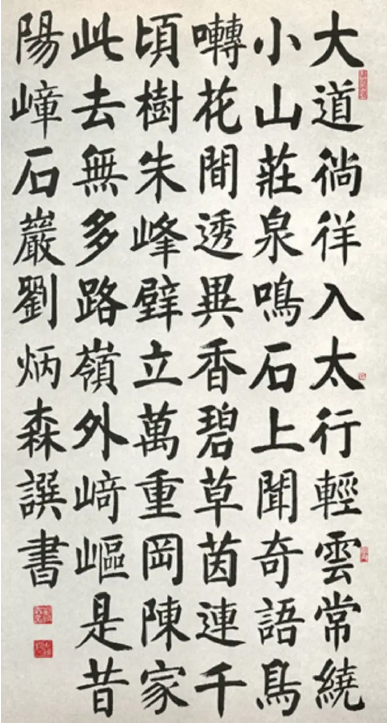 大道徜徉入太行輕雲常繞
小山莊泉鳴石上聞奇語鳥
囀花間透異香碧草茵連千
頃樹朱峰壁立萬重岡陳家
此去無多路嶺外崎嶇是昔
陽嶂石巖劉炳森譔書